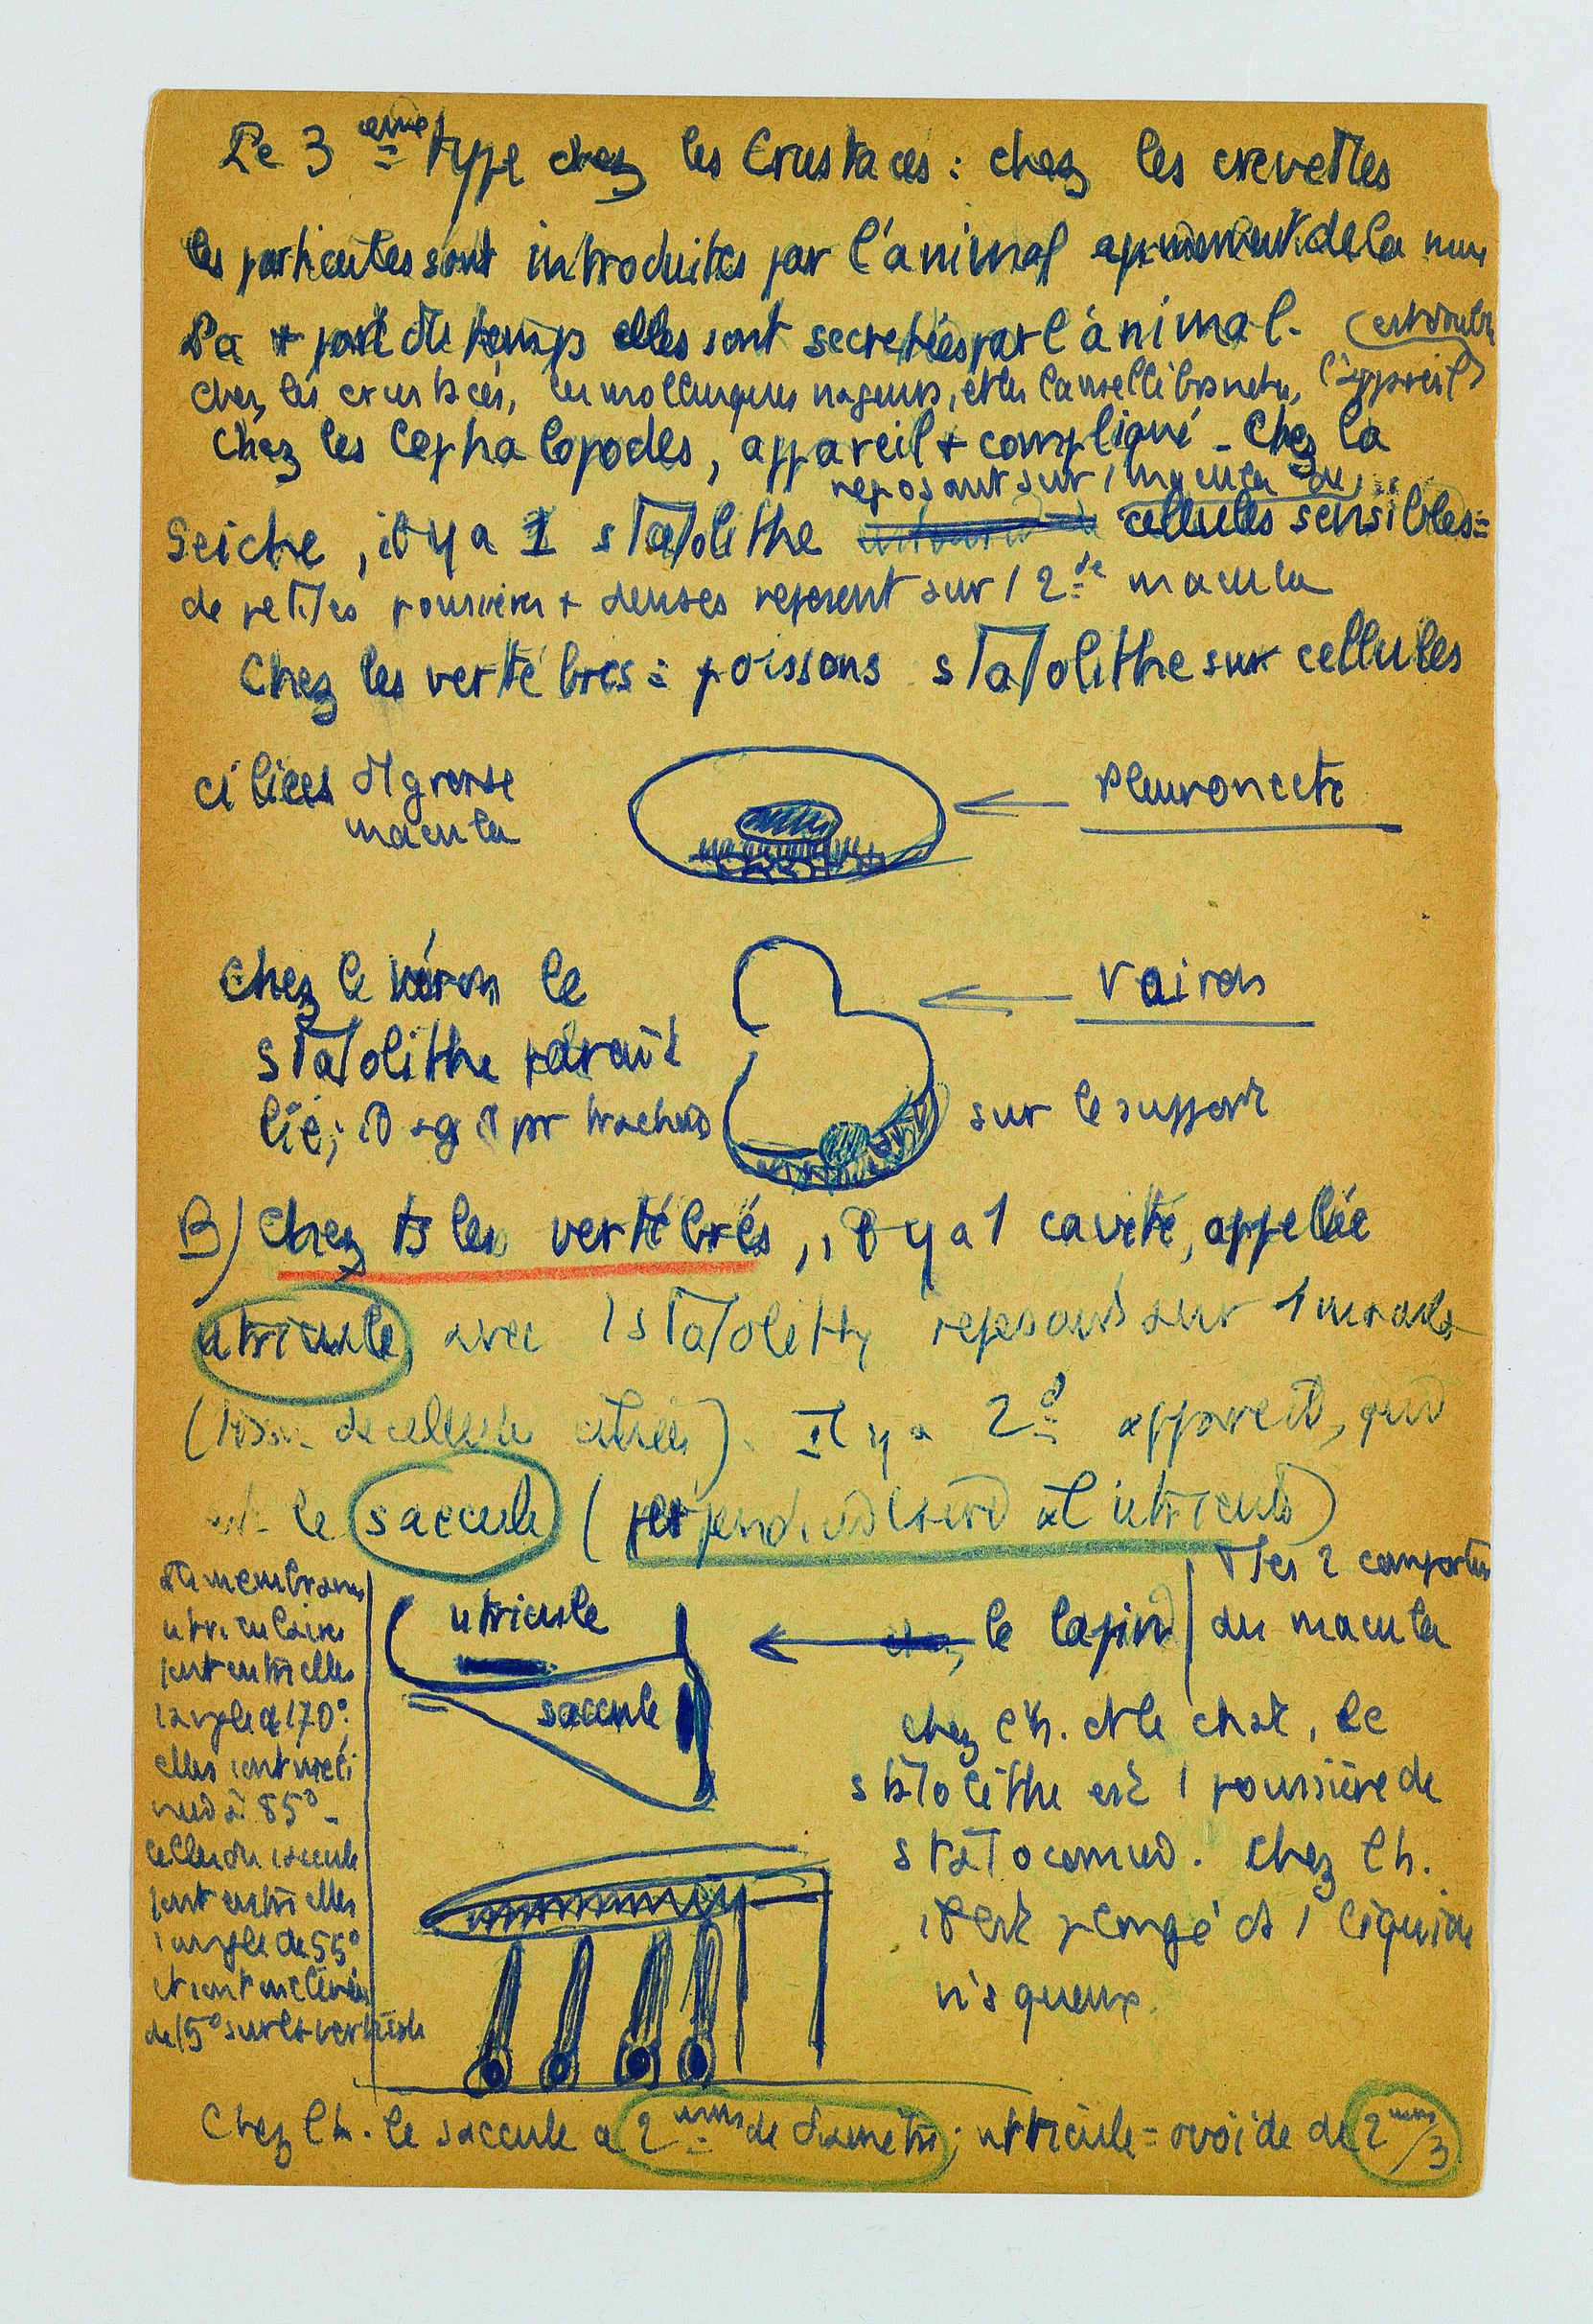 Le 3ème type chez les Crustacés : chez les crevettes
les particules sont introduites par l'animal au moment de la mue
La + part du temps elles sont secrétées par l'animal. (est double
chez les crustacés, les mollusques nageurs, et les lamellibranches, l'appareil)
Chez les Céphalopodes, appareil + compliqué - Chez la
reposant sur 1 macula de
Seiche, il y a 1 statolithe cellules sensibles =
de petites poussières + denses reposent sur 1 2de macula
Chez les vertébrés = poissons statolithe sur cellules
ciliées et grosse
macula
Pleuronecte
Chez le véron le
Vairon
statolithe paraît
lié; il agit par sur le support
B) Chez ts les vertébrés, il y a 1 cavité, appelée
utricule avec 1 statolithe reposant sur 1 macula
(tissu de cellules ciliées). Il y a 2d appareil, qui
est le saccule (perpendiculaire à l'utricule)
Les 2 comportent
des macula
utricule
saccule
le lapin
les membranes
utriculaires
font entre elles
1 angle de 170°;
elles sont incli
nées à 85° -
celles du saccule
font entre elles
1 angle de 55°
et sont inclinées
de 15° sur la verticale
chez l'h. et le chat, le
statolithe est 1 poussière de
statoconies. Chez l'h.
il est plongé ds 1 liquide
visqueux.
Chez l'h. le saccule a 2 mm de diamètre; utricule = ovoïde de 2 mm/3